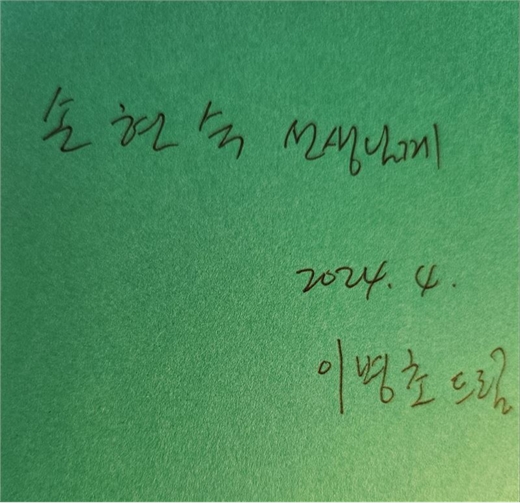 손현숙 선생님께
2024. 4.
이병초 드림